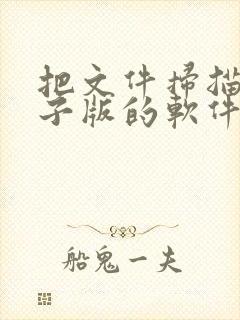 把文件掃描
子版的軟件
船鬼一夫